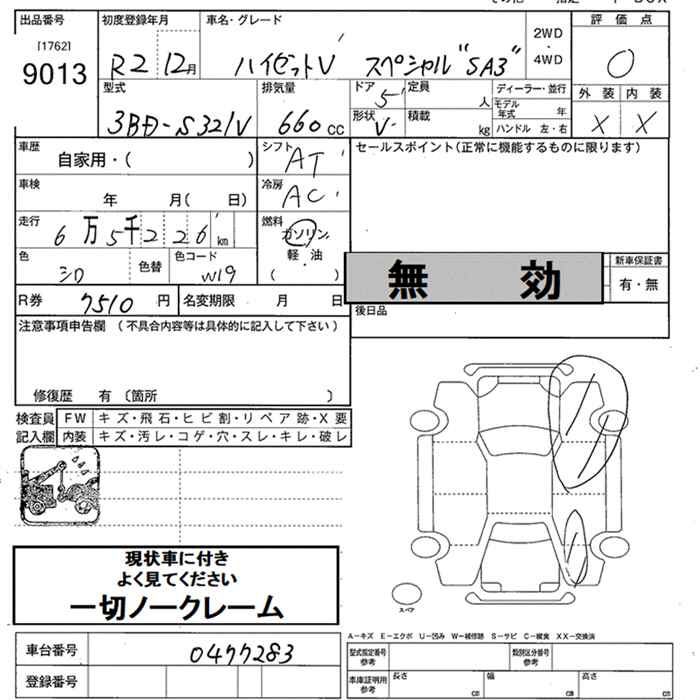 出品番号 初度登録年月 車名・グレード 2WD・4WD 評価点
[1762]
9013 R2 12月 ハイゼットV スペシャル"SA3" O
型式 排気量 ドア 5 定員 人 ディーラー・並行 外装 内装
3BD-S321V 660cc 形状 V 積載 kg モデル年式 年 ハンドル 左・右 X X
車歴 自家用・( ) シフト AT セールスポイント(正常に機能するものに限ります)
車検 年 月( 日) 冷房 AC
走行 6万5千226km 燃料 ガソリン・軽油 ( )
色 シロ 色替 色コード W19 無効 新車保証書 有・無
R券 7510円 名変期限 月 日 後日品
注意事項申告欄 (不具合内容等は具体的に記入して下さい)
修復歴 有 〔箇所 〕
検査員記入欄 FW キズ・飛石・ヒビ割・リペア跡・X要
内装 キズ・汚レ・コゲ・穴・スレ・キレ・破レ
現状車に付き
よく見てください
一切ノークレーム
スペア
A－キズ E－エクボ U－凹み W－補修跡 S－サビ C－腐食 XX－交換済
車台番号 0477283 型式指定番号 参考 類別区分番号 参考
登録番号 車庫証明用 参考 長さ cm 幅 cm 高さ cm